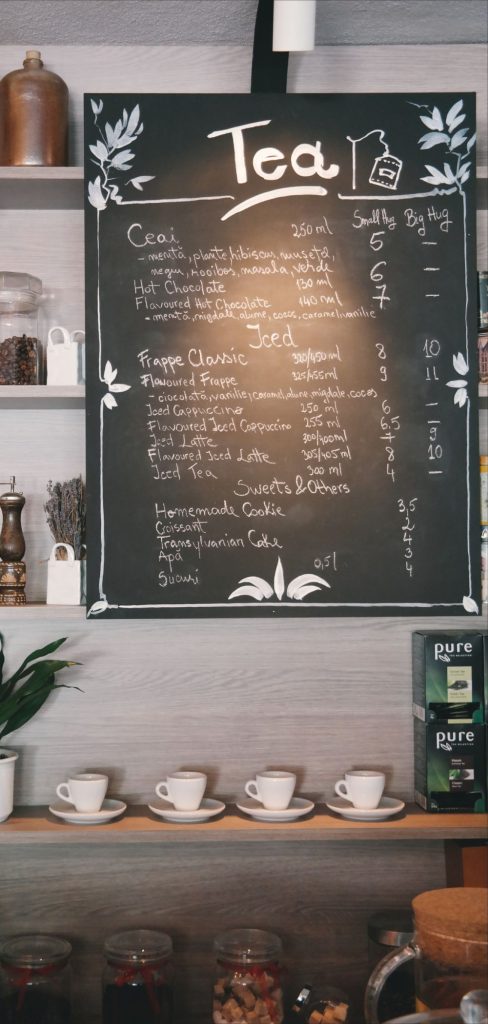 Tea
Small Hug Big Hug
Ceai 250 ml 5 –
- mentă, plante, hibiscus, mușețel,
negru, rooibos, masala, verde
Hot Chocolate 130 ml 6 –
Flavoured Hot Chocolate 140 ml 7 –
- mentă, migdale, alune, cocos, caramel, vanilie
Iced
Frappe Classic 320/450 ml 8 10
Flavoured Frappe 325/455 ml 9 11
- ciocolată, vanilie, caramel, alune, migdale, cocos
Iced Cappuccino 250 ml 6 –
Flavoured Iced Cappuccino 255 ml 6,5 –
Iced Latte 300/400 ml 7 9
Flavoured Iced Latte 305/405 ml 8 10
Iced Tea 300 ml 4 –
Sweets & Others
Homemade Cookie 3,5
Croissant 2
Transylvanian Cake 4
Apă 0,5l 3
Sucuri 4
pure
TEA SELECTION
pure
TEA SELECTION